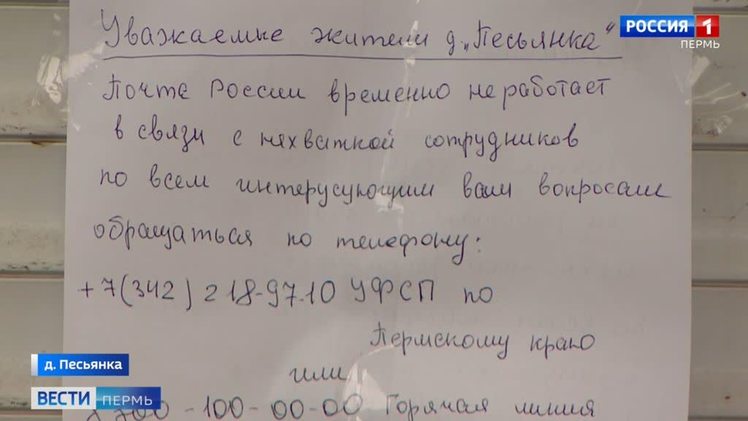 Уважаемые жители д. „Песьянка"
РОССИЯ 1
ПЕРМЬ
Почта России временно не работает
в связи с нехваткой сотрудников
по всем интерусующим вам вопросам
обращаться по телефону:
+7(342) 218-97-10 УФСП по
Пермскому краю
или
д. Песьянка
ВЕСТИ ПЕРМЬ
-100-00-00 Горячая линия